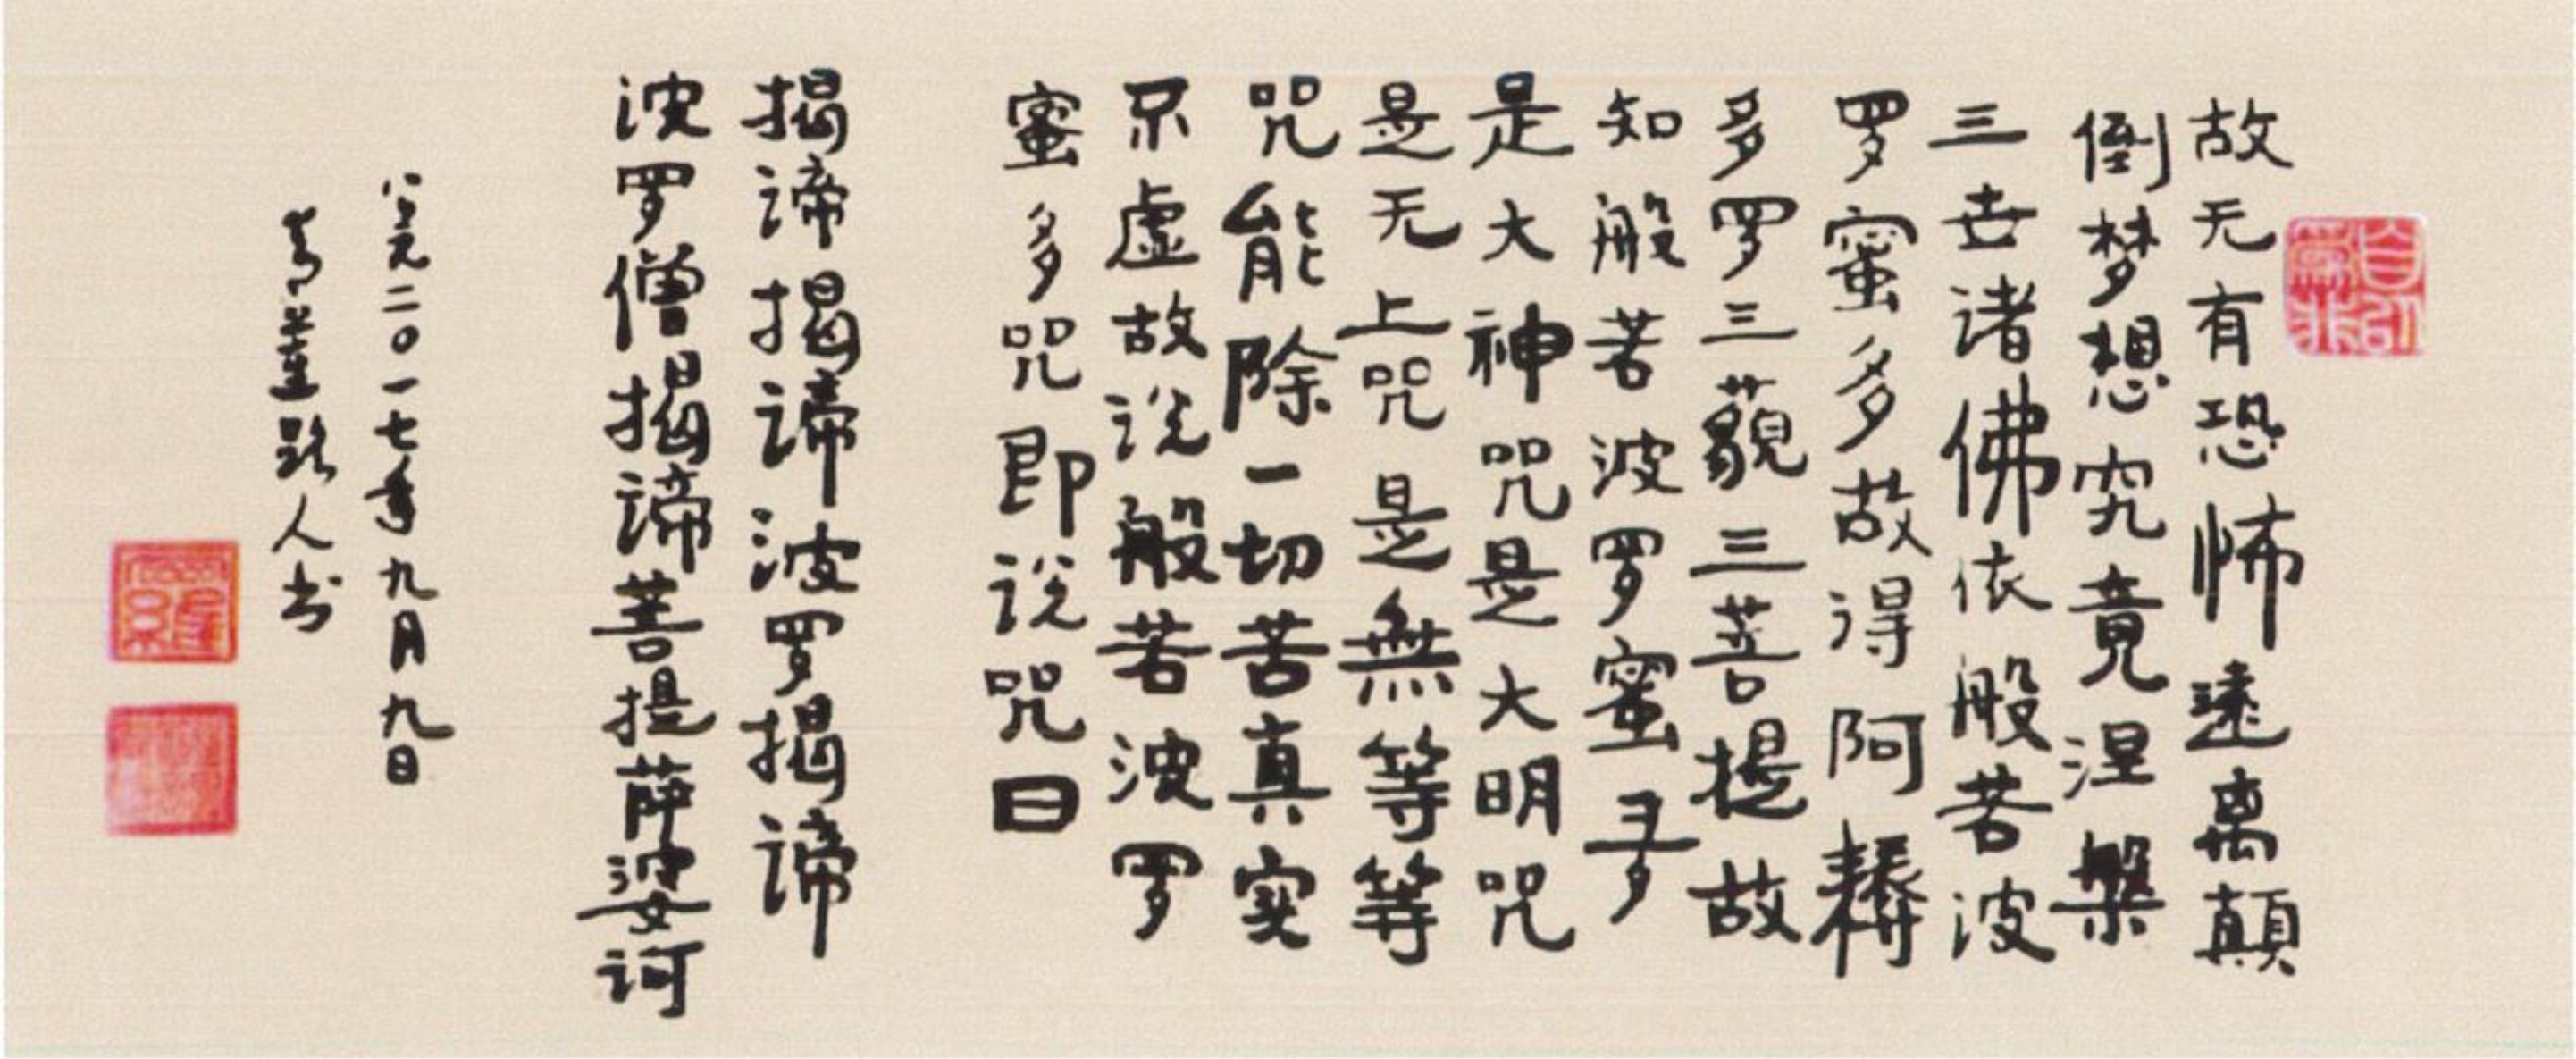 故无有恐怖遠离顛
倒梦想究竟涅槃
三世诸佛依般若波
罗蜜多故得阿耨
多罗三藐三菩提故
知般若波罗蜜多
是大神咒是大明咒
是无上咒是無等等
咒能除一切苦真实
不虚故说般若波罗
蜜多咒即说咒曰
揭谛揭谛波罗揭谛
波罗僧揭谛菩提萨婆诃
公元二〇一七年九月九日
人书